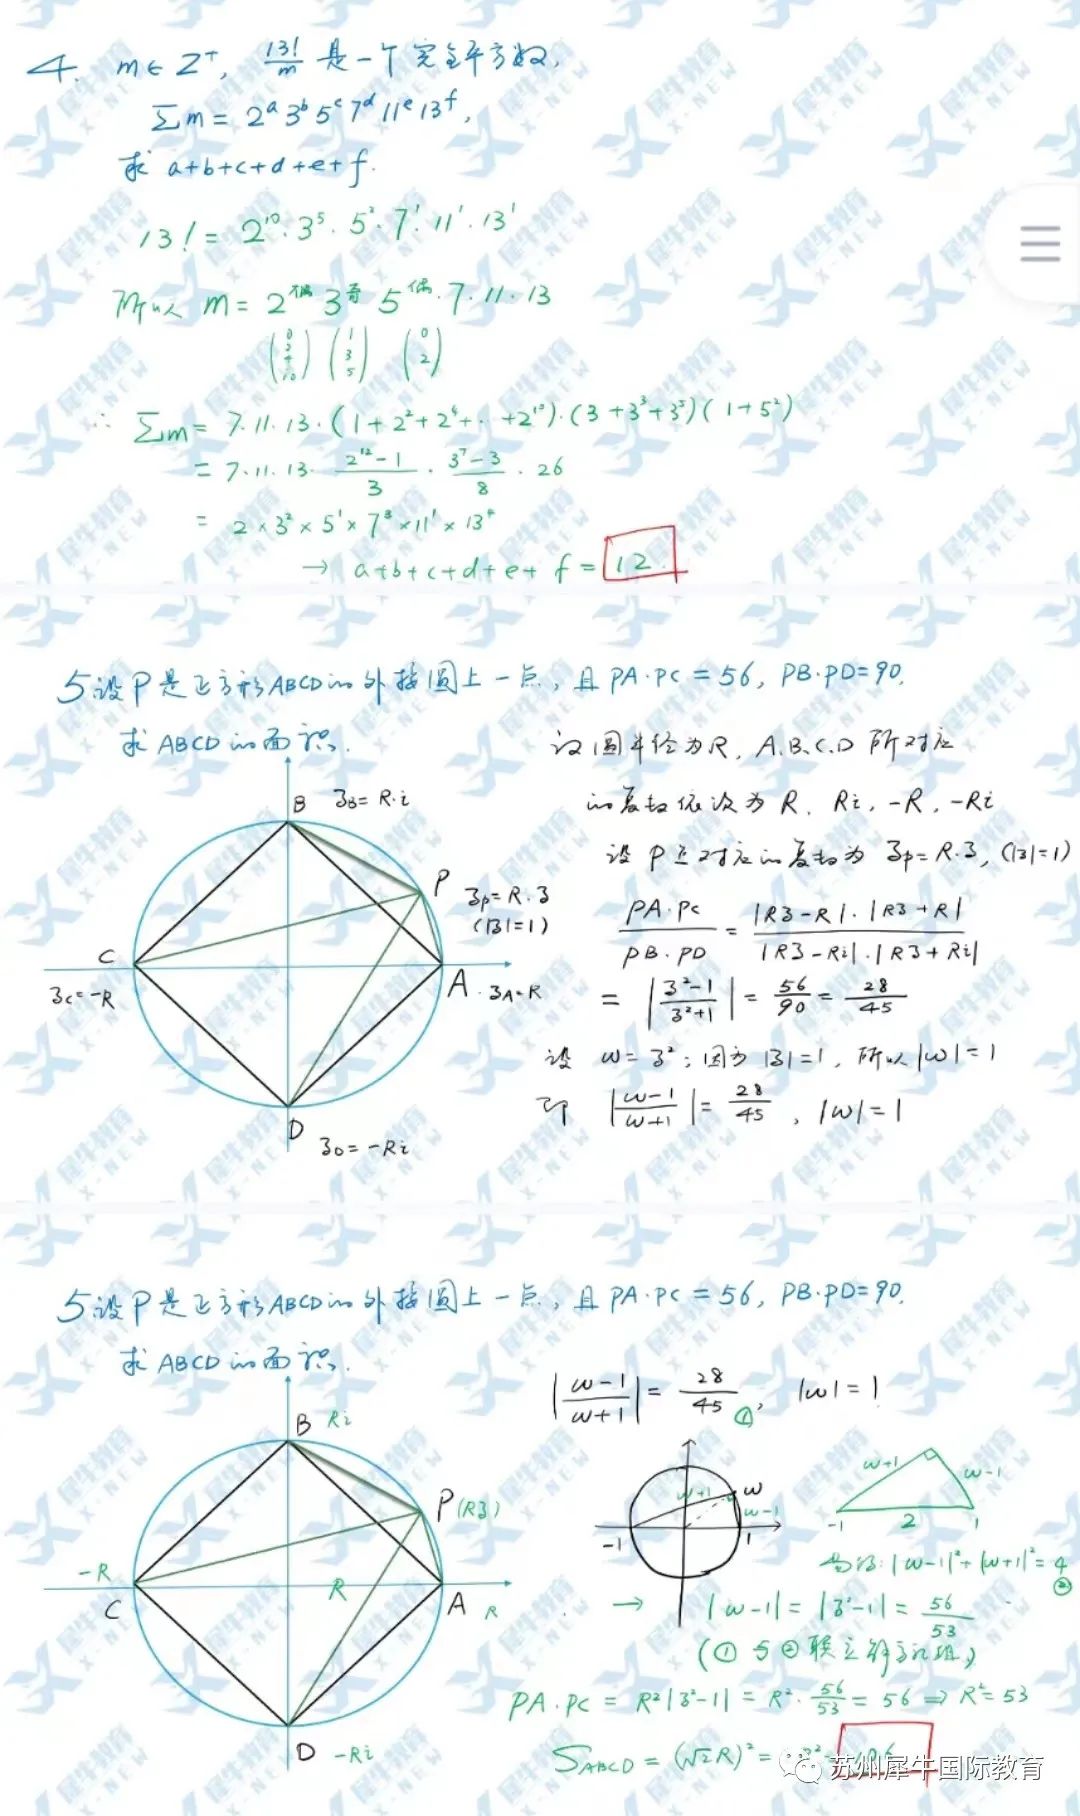 4. m∈Z⁺, 13!/m 是一个完全平方数,
Σm = 2ᵃ3ᵇ5ᶜ7ᵈ11ᵉ13ᶠ,
求 a+b+c+d+e+f.
13! = 2¹⁰·3⁵·5²·7¹·11¹·13¹
所以 m = 2^偶 3^奇 5^偶·7·11·13
(0 2 4 10) (1 3 5) (0 2)
∴ Σm = 7·11·13·(1+2²+2⁴+···+2¹⁰)·(3+3³+3⁵)(1+5²)
= 7·11·13· (2¹²-1)/3 · (3⁷-3)/8 · 26
= 2×3²×5¹×7³×11¹×13⁴
→ a+b+c+d+e+f = 12.
5 设P是正方形ABCD的外接圆上一点, 且PA·PC=56, PB·PD=90,
求ABCD的面积.
设圆半径为R, A.B.C.D所对应
的复数依次为 R, Ri, -R, -Ri
设P点对应的复数为 zp=R·z, (|z|=1)
B zB=R·i
P zp=R·z
(|z|=1)
C
zC=-R
A. zA=R
D zD=-Ri
PA·PC/PB·PD = |Rz-R|·|Rz+R| / |Rz-Ri|·|Rz+Ri|
= |(z²-1)/(z²+1)| = 56/90 = 28/45
设 w=z²; 因为|z|=1, 所以|w|=1
即 |(w-1)/(w+1)| = 28/45, |w|=1
5 设P是正方形ABCD的外接圆上一点, 且PA·PC=56, PB·PD=90,
求ABCD的面积.
|(w-1)/(w+1)| = 28/45 ①, |w|=1
B Ri
P(Rz)
-R
C
R
A R
D -Ri
w+1 w
w-1
-1 1
w+1 w-1
-1 2 1
|w-1|²+|w+1|²=4 ②
→ |w-1| = |z²-1| = 56/53
(①与②联立解方程组)
PA·PC = R²|z²-1| = R²·56/53 = 56 ⇒ R²=53
S_ABCD = (√2R)² =
苏州犀牛国际教育
犀牛教育
X-NEW